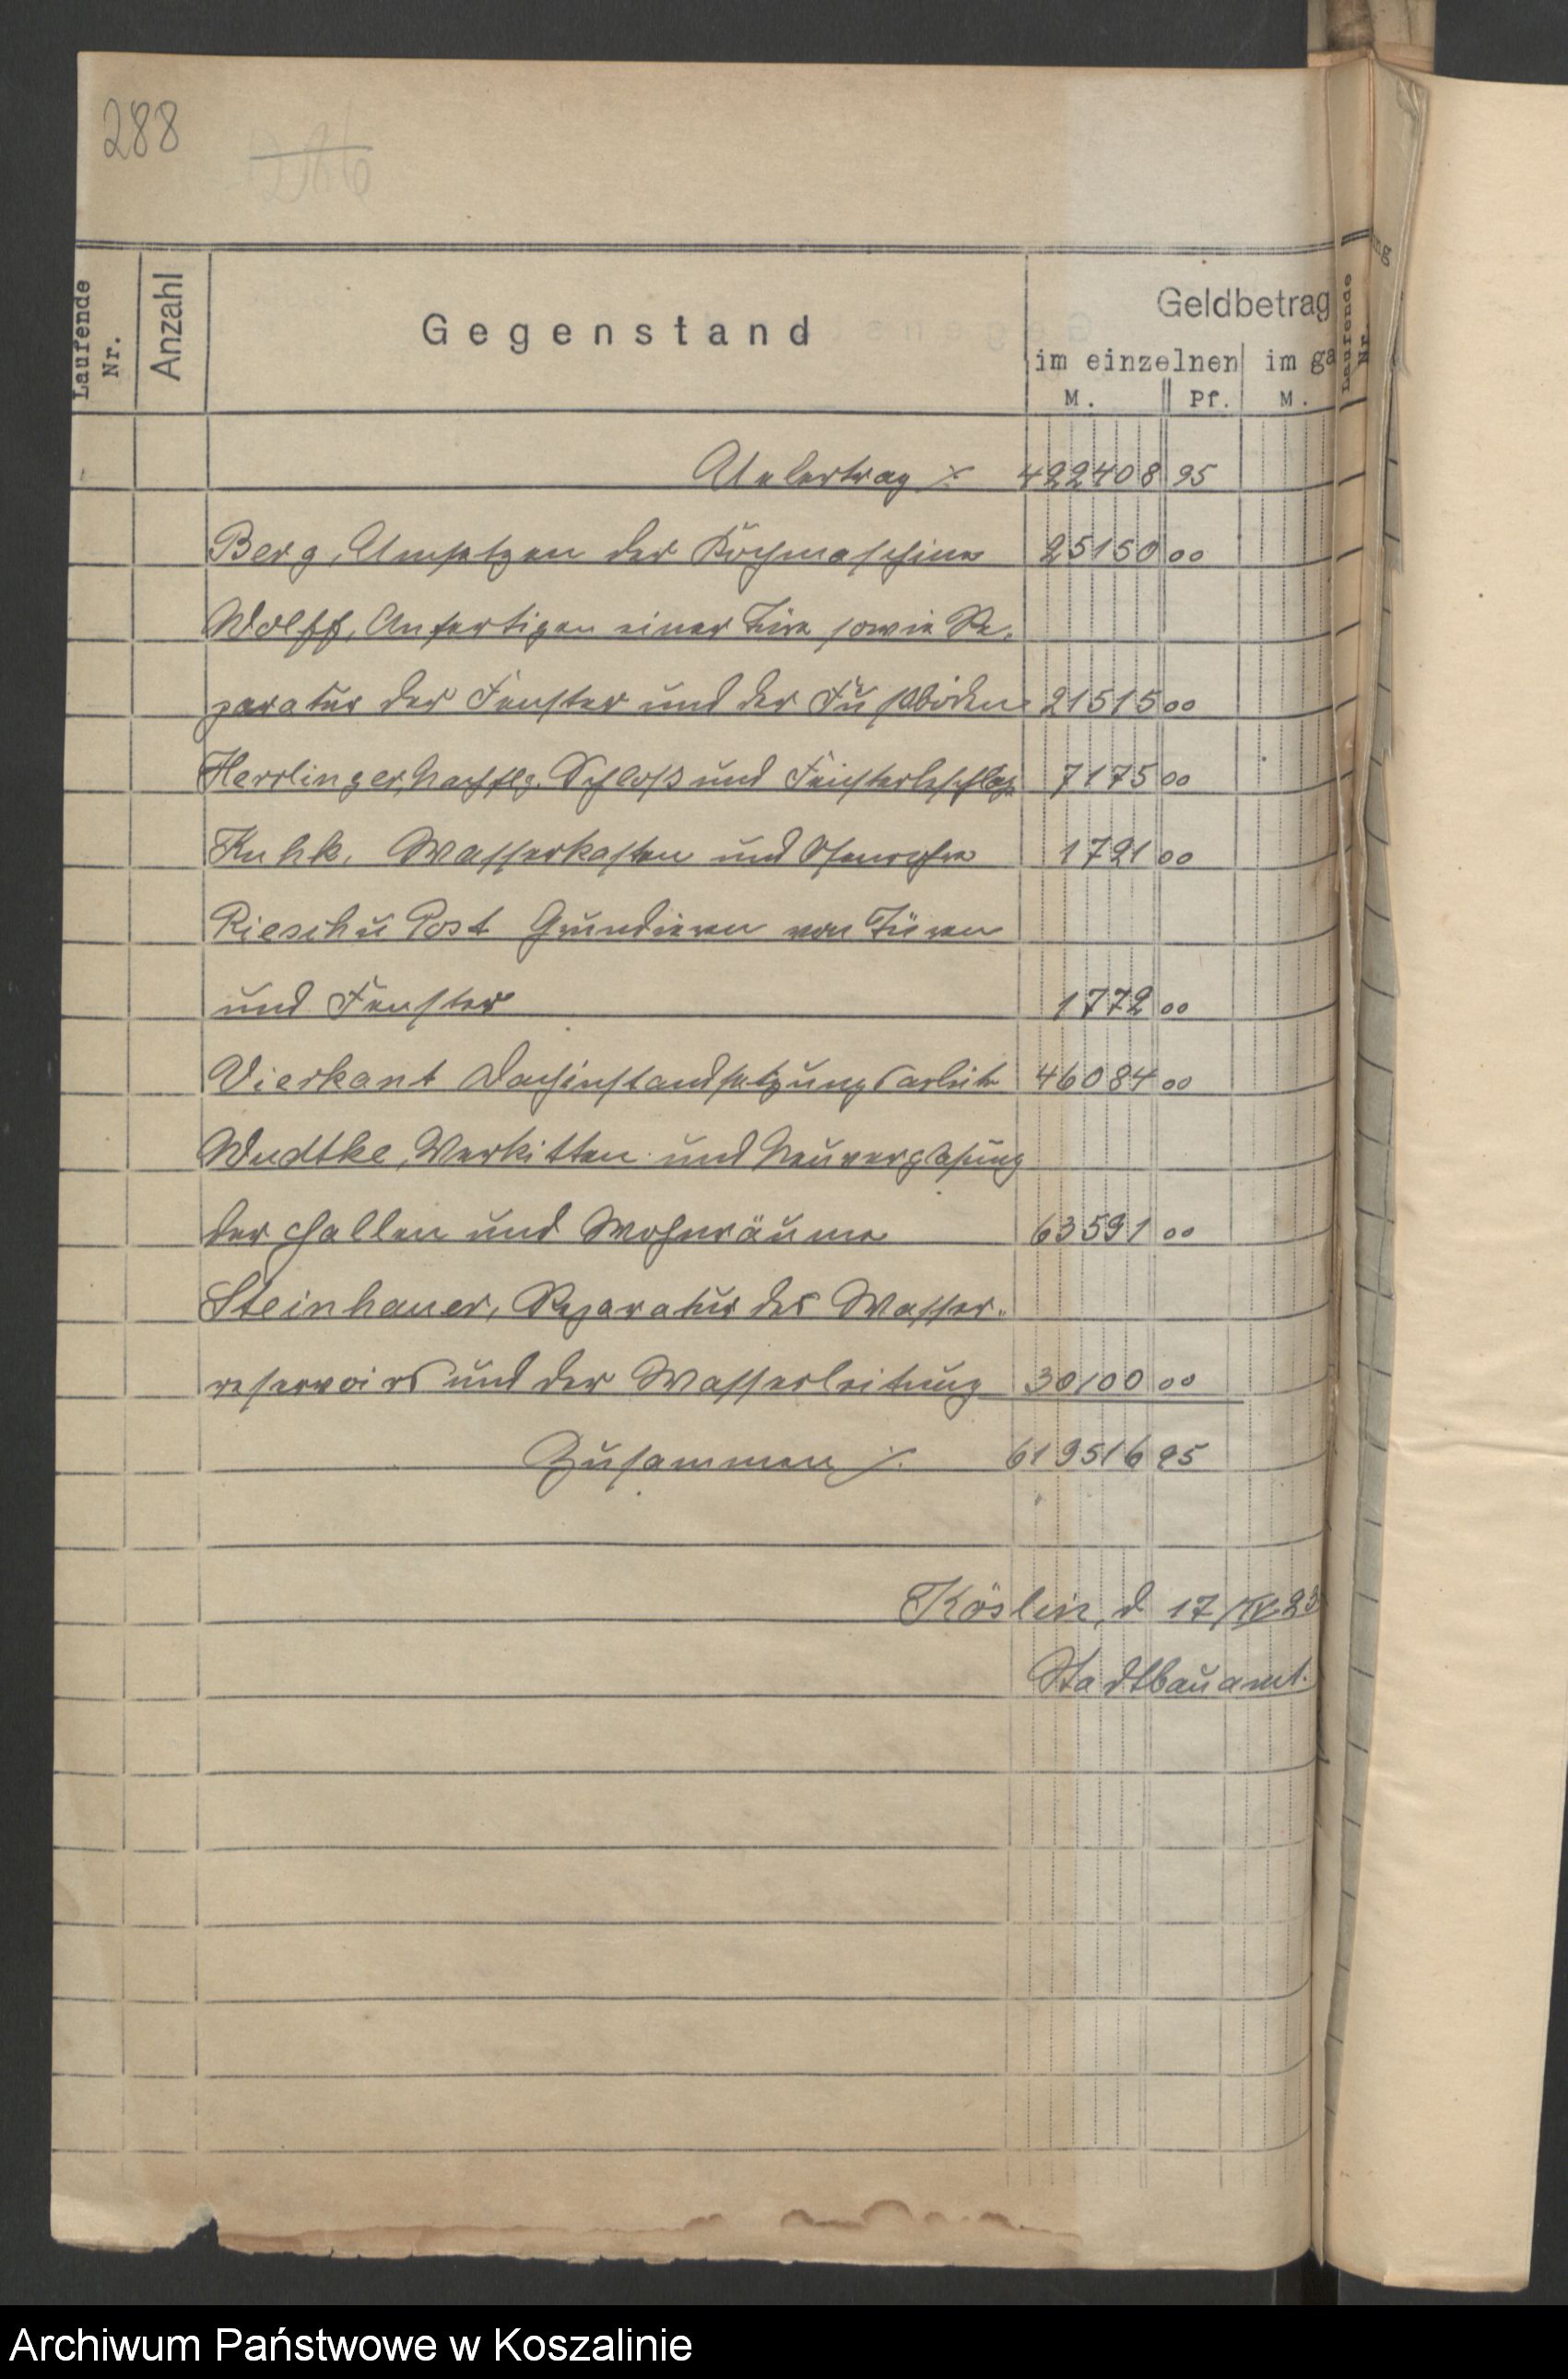 288
286
Laufende Nr.
Anzahl
Gegenstand
Geldbetrag
im einzelnen im ga
M. Pf. M.
Laufende Nr.
Uebertrag 422408 95
Berg, Umsetzen der Kochmaschine 25150 00
Wolff, Anfertigen einer Türe sowie Re-
paratur der Fenster und der Fußböden 21515 00
Herrlinger, Nachflg. Schloß und Fensterbeschläge 7175 00
Kuhk, Wasserkasten und Ofenrohre 1721 00
Riesch u Post Grundieren von Türen
und Fenster 1772 00
Vierkant Dachinstandsetzungsarbeite 46084 00
Wudtke, Verkitten und Neuverglasung
der Hallen und Wohnräume 63591 00
Steinhauer, Reparatur des Wasser-
reservoirs und der Wasserleitung 30100 00
Zusammen 619516 95
Köslin, d 17/IV 23
Stadtbauamt.
Archiwum Państwowe w Koszalinie